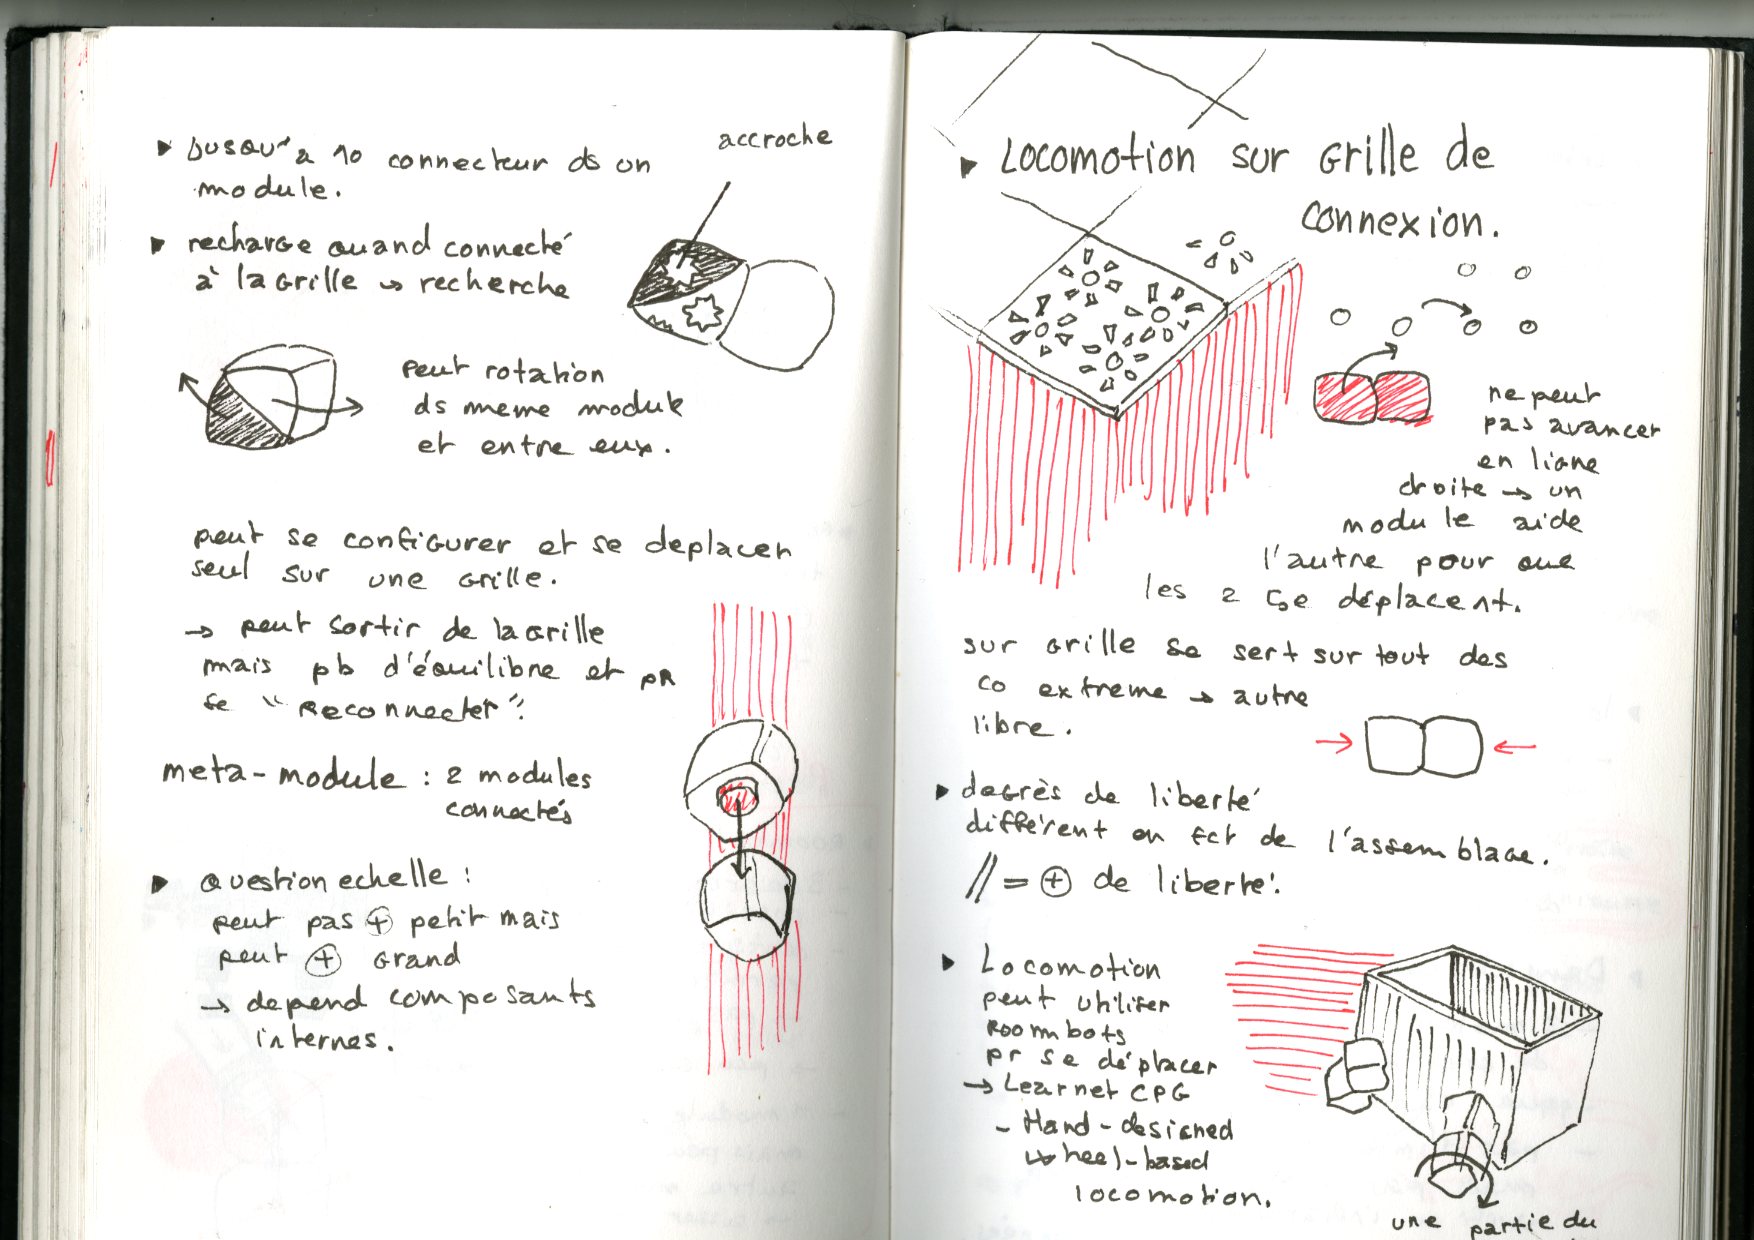 ▶ Jusqu'à 10 connecteur ds un
module.
accroche
▶ recharge quand connecté
à la Grille → recherche
peut rotation
ds meme module
et entre eux.
peut se configurer et se deplacer
seul sur une Grille.
→ peut sortir de la Grille
mais pb d'équilibre et pR
se "Reconnecter".
meta-module : 2 modules
connectés
▶ question echelle :
peut pas ⊕ petit mais
peut ⊕ Grand
→ depend composants
internes.
▶ Locomotion sur Grille de
connexion.
ne peut
pas avancer
en ligne
droite → un
module aide
l'autre pour que
les 2 se déplacent.
sur Grille se sert surtout des
co extreme → autre
libre.
▶ degrès de liberté
différent en fct de l'assemblage.
// = ⊕ de liberté.
▶ Locomotion
peut utiliser
Roombots
pr se déplacer
→ Learnet CPG
- Hand-designed
wheel-based
locomotion.
une partie du